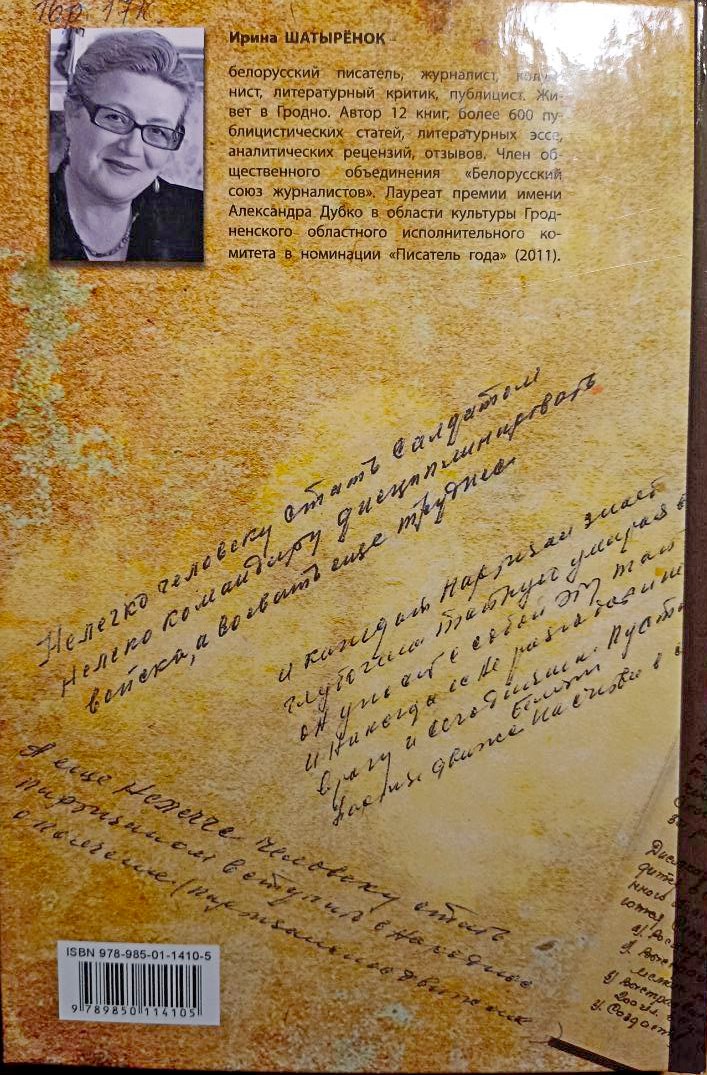 1бр. 17к.
Ирина ШАТЫРЁНОК
белорусский писатель, журналист, колум-
нист, литературный критик, публицист. Жи-
вет в Гродно. Автор 12 книг, более 600 пу-
блицистических статей, литературных эссе,
аналитических рецензий, отзывов. Член об-
щественного объединения «Белорусский
союз журналистов». Лауреат премии имени
Александра Дубко в области культуры Грод-
ненского областного исполнительного ко-
митета в номинации «Писатель года» (2011).
Нелегко человеку стать салдатом
Нелегко командиру дисциплинировать
войско, а воевать еще труднее.
и каждый Партизан знает
глубокую тайную умирая
он уносит с собой эту
и никогда не
врагу и сегодняшний. Пусть
даже
А еще Нелегче человеку стать
партизаном вступить в Народное
ополчение (партизанское движение
ISBN 978-985-01-1410-5
9 789850 114105